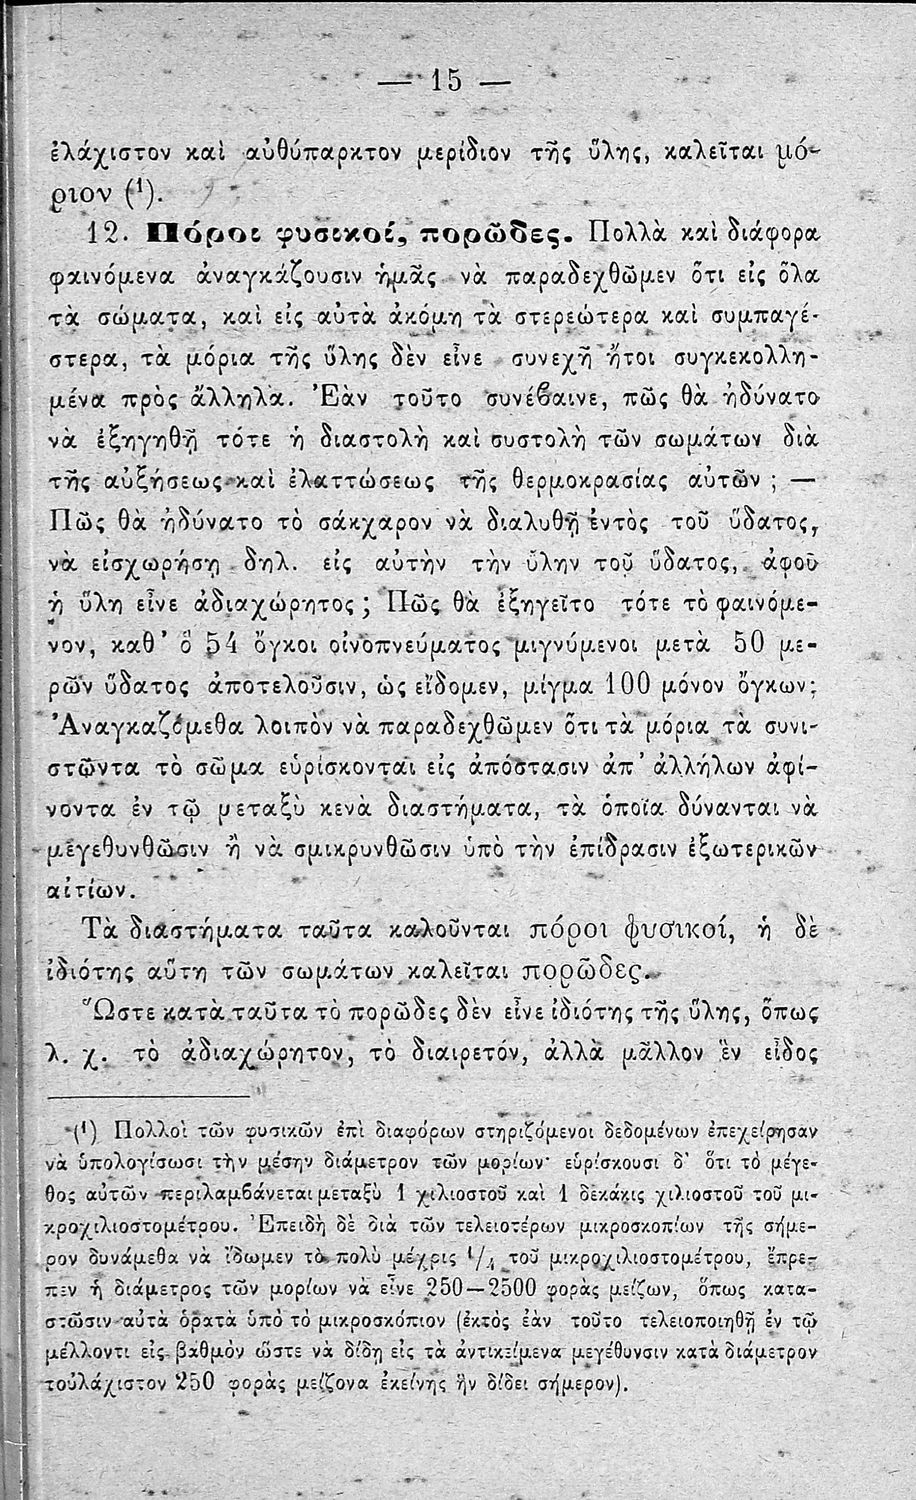 — 15 —
ἐλάχιστον καὶ αὐθύπαρκτον μερίδιον τῆς ὕλης, καλεῖται μό-
ριον (¹).
12. Πόροι φυσικοί, πορῶδες. Πολλὰ καὶ διάφορα
φαινόμενα ἀναγκάζουσιν ἡμᾶς νὰ παραδεχθῶμεν ὅτι εἰς ὅλα
τὰ σώματα, καὶ εἰς αὐτὰ ἀκόμη τὰ στερεώτερα καὶ συμπαγέ-
στερα, τὰ μόρια τῆς ὕλης δὲν εἶνε συνεχῆ ἤτοι συγκεκολλη-
μένα πρὸς ἄλληλα. Ἐὰν τοῦτο συνέβαινε, πῶς θὰ ἠδύνατο
νὰ ἐξηγηθῇ τότε ἡ διαστολὴ καὶ συστολὴ τῶν σωμάτων διὰ
τῆς αὐξήσεως καὶ ἐλαττώσεως τῆς θερμοκρασίας αὐτῶν ; —
Πῶς θὰ ἠδύνατο τὸ σάκχαρον νὰ διαλυθῇ ἐντὸς τοῦ ὕδατος,
νὰ εἰσχωρήσῃ δηλ. εἰς αὐτὴν τὴν ὕλην τοῦ ὕδατος, ἀφοῦ
ἡ ὕλη εἶνε ἀδιαχώρητος ; Πῶς θὰ ἐξηγεῖτο τότε τὸ φαινόμε-
νον, καθ' ὃ 54 ὄγκοι οἰνοπνεύματος μιγνύμενοι μετὰ 50 με-
ρῶν ὕδατος ἀποτελοῦσιν, ὡς εἴδομεν, μίγμα 100 μόνον ὄγκων;
Ἀναγκαζόμεθα λοιπὸν νὰ παραδεχθῶμεν ὅτι τὰ μόρια τὰ συνι-
στῶντα τὸ σῶμα εὑρίσκονται εἰς ἀπόστασιν ἀπ' ἀλλήλων ἀφί-
νοντα ἐν τῷ μεταξὺ κενὰ διαστήματα, τὰ ὁποῖα δύνανται νὰ
μεγεθυνθῶσιν ἢ νὰ σμικρυνθῶσιν ὑπὸ τὴν ἐπίδρασιν ἐξωτερικῶν
αἰτίων.
Τὰ διαστήματα ταῦτα καλοῦνται πόροι φυσικοί, ἡ δὲ
ἰδιότης αὕτη τῶν σωμάτων καλεῖται πορῶδες.
Ὥστε κατὰ ταῦτα τὸ πορῶδες δὲν εἶνε ἰδιότης τῆς ὕλης, ὅπως
λ. χ. τὸ ἀδιαχώρητον, τὸ διαιρετόν, ἀλλὰ μᾶλλον ἓν εἶδος
(¹) Πολλοὶ τῶν φυσικῶν ἐπὶ διαφόρων στηριζόμενοι δεδομένων ἐπεχείρησαν
νὰ ὑπολογίσωσι τὴν μέσην διάμετρον τῶν μορίων· εὑρίσκουσι δ' ὅτι τὸ μέγε-
θος αὐτῶν περιλαμβάνεται μεταξὺ 1 χιλιοστοῦ καὶ 1 δεκάκις χιλιοστοῦ τοῦ μι-
κροχιλιοστομέτρου. Ἐπειδὴ δὲ διὰ τῶν τελειοτέρων μικροσκοπίων τῆς σήμε-
ρον δυνάμεθα νὰ ἴδωμεν τὸ πολὺ μέχρις ¹/₄ τοῦ μικροχιλιοστομέτρου, ἔπρε-
πεν ἡ διάμετρος τῶν μορίων νὰ εἶνε 250—2500 φορὰς μείζων, ὅπως κατα-
στῶσιν αὐτὰ ὁρατὰ ὑπὸ τὸ μικροσκόπιον (ἐκτὸς ἐὰν τοῦτο τελειοποιηθῇ ἐν τῷ
μέλλοντι εἰς βαθμὸν ὥστε νὰ δίδῃ εἰς τὰ ἀντικείμενα μεγέθυνσιν κατὰ διάμετρον
τοὐλάχιστον 250 φορὰς μείζονα ἐκείνης ἣν δίδει σήμερον).